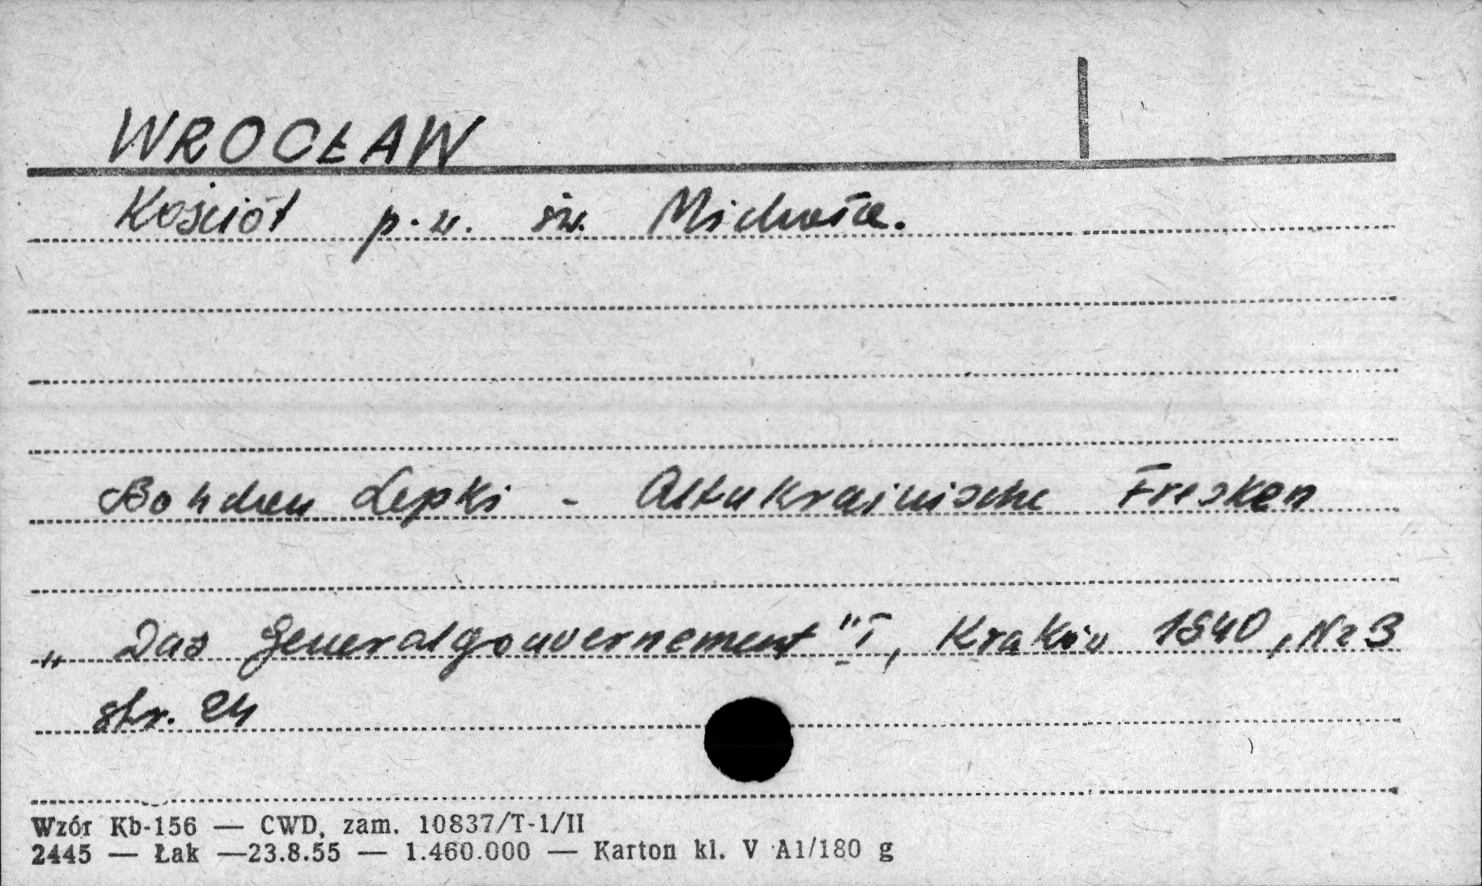 WROCŁAW
Kościół p.w. św. Michała.
Bohdan Lepki - Altukrainische Fresken
„Das Generalgouvernement" I, Kraków 1940, Nr 3
str. 24
Wzór Kb-156 — CWD, zam. 10837/T-1/II
2445 — Łak —23.8.55 — 1.460.000 — Karton kl. V A1/180 g